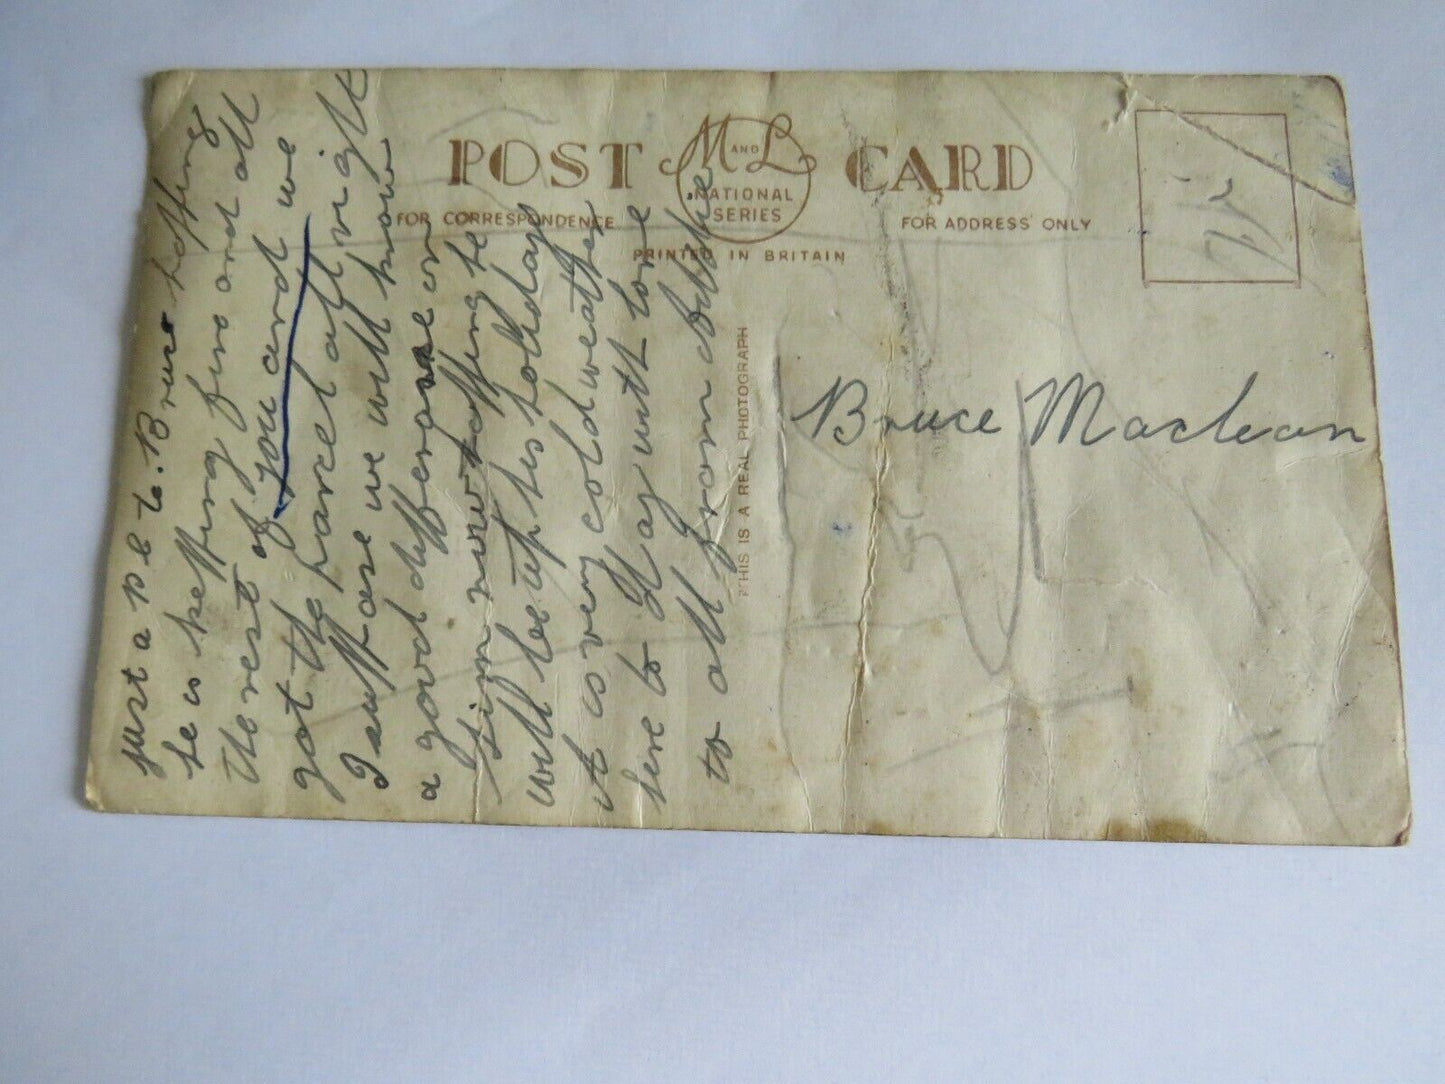 POST CARD
M AND L
NATIONAL
SERIES
FOR CORRESPONDENCE
FOR ADDRESS ONLY
PRINTED IN BRITAIN
THIS IS A REAL PHOTOGRAPH
just a p c to Bruce hopping
he is kepping fine and all
the rest of you and we
got the parcel all right
I suppose we will know
a good difference on
him now
will be up his holidays
it is very cold weather
here to Hay with love
to all from
Bruce Maclean